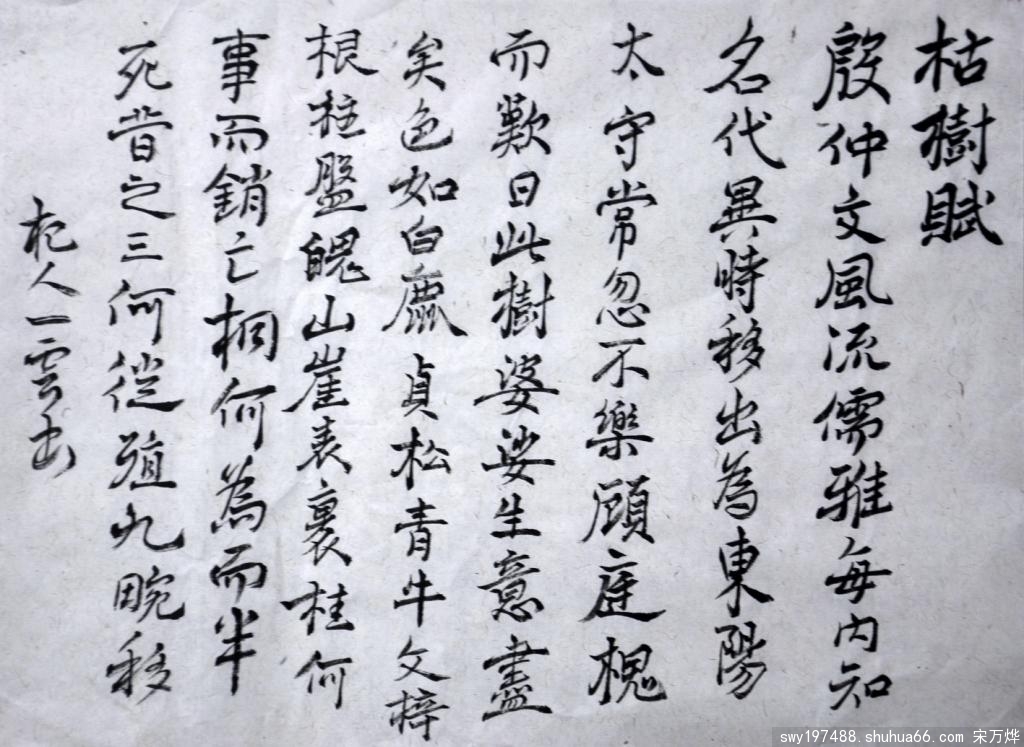 枯樹賦
殷仲文風流儒雅每内知
名代異時移出為東陽
太守常忽不樂顧庭槐
而歎曰此樹婆娑生意盡
矣色如白鹿貞松青牛文梓
根柱盤魄山崖表裏桂何
事而銷亡桐何為而半
死昔之三何從殖九畹移
杞人一雲书
swy197488.shuhua66.com 宋万烨